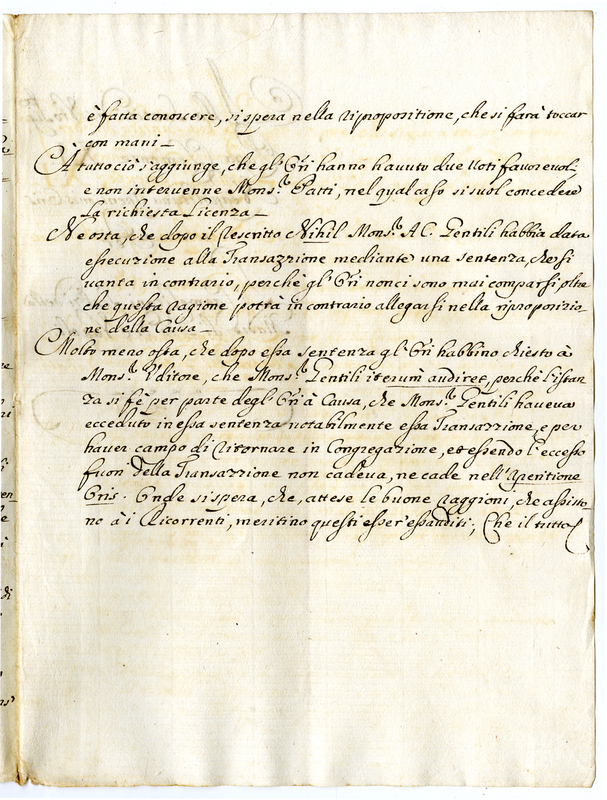 è fatta conoscere, si spera nella riproposizione, che si farà toccar
con mani _
À tutto ciò s'aggiunge, che gl'Orī hanno havuto due voti favorevoli
e non intervenne Mons.r Patti, nel qual caso si suol concedere
la richiesta Licenza _
Ne osta, che dopo il rescritto Nihil Mons.r A C. Gentili habbia data
essecuzione alla Transazzione mediante una sentenza, che si
vanta in contrario, perche gl'Orī non ci sono mai comparsi, oltre
che questa ragione potrà in contrario allegarsi nella riproposizio=
ne della Causa _
Molto meno osta, che dopo essa sentenza gl'Orī habbino chiesto à
Mons.r Uditore, che Mons.r Gentili iterum audiret, perche l'istan
za si fè per parte degl'Orī à Causa, che Mons.r Gentili haveva
ecceduto in essa sentenza notabilmente essa Transazzione, e per
haver campo di ritornare in Congregazione, et essendo l'eccesso
fuori della Transazzione non cadeva, ne cade nell'Aperitione
Oris. Onde si spera, che, attese le buone raggioni, che assisto=
no à i Ricorrenti, meritino questi esser'essauditi; Che il tutto